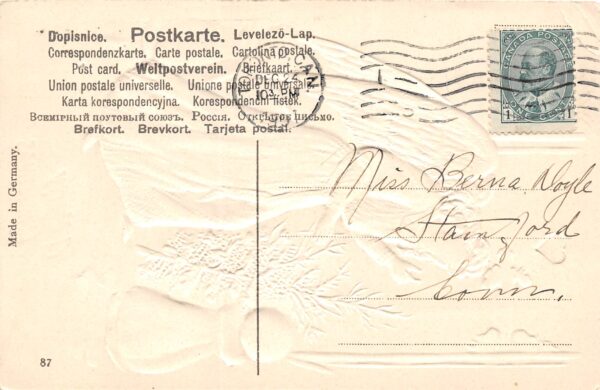 Dopisnice. Postkarte. Levelező-Lap.
Correspondenzkarte. Carte postale. Cartolina postale.
Post card. Weltpostverein. Briefkaart.
Union postale universelle. Unione postale universale.
Karta korespondencyjna. Korespondenční lístek.
Всемірный почтовый союзъ. Россія. Открытое письмо.
Brefkort. Brevkort. Tarjeta postal.
CAN.
DEC 22
CANADA POSTAGE
1 ONE CENT 1
Miss Berna Doyle
Stamford
Conn.
Made in Germany.
87